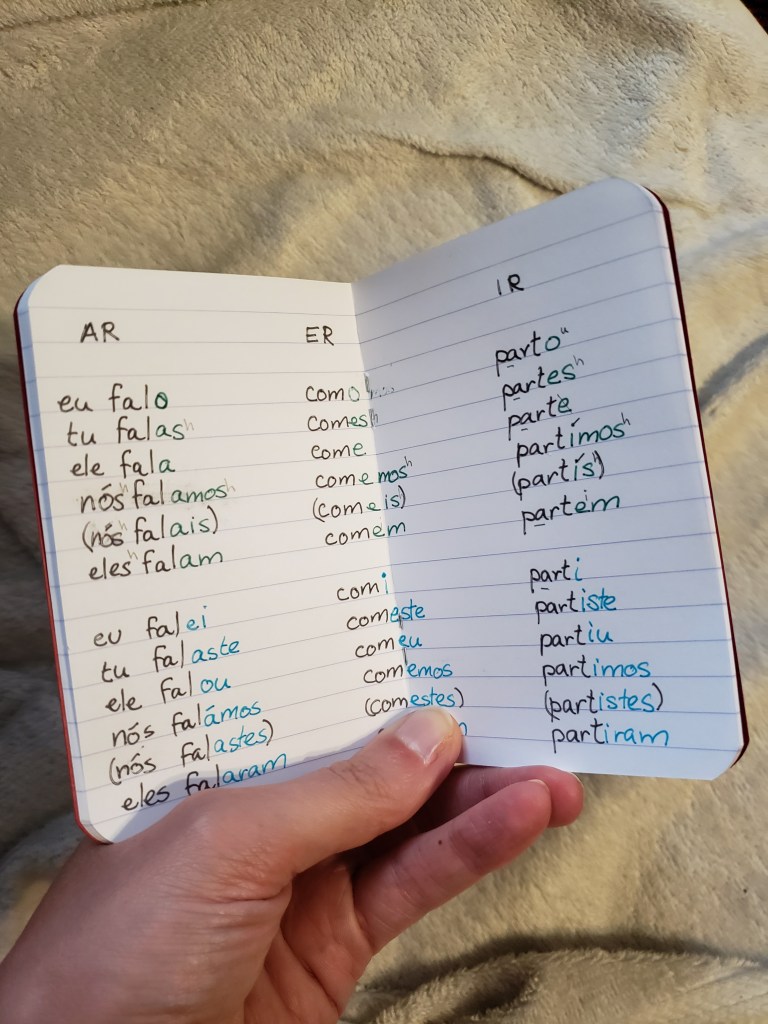 AR ER IR
eu falo como parto
tu falas comes partes
ele fala come parte
nós falamos comemos partímos
(nós falais) (comeis) (partís)
eles falam comem partem
eu falei comi parti
tu falaste comeste partiste
ele falou comeu partiu
nós falámos comemos partimos
(nós falastes) (comestes) (partistes)
eles falaram partiram